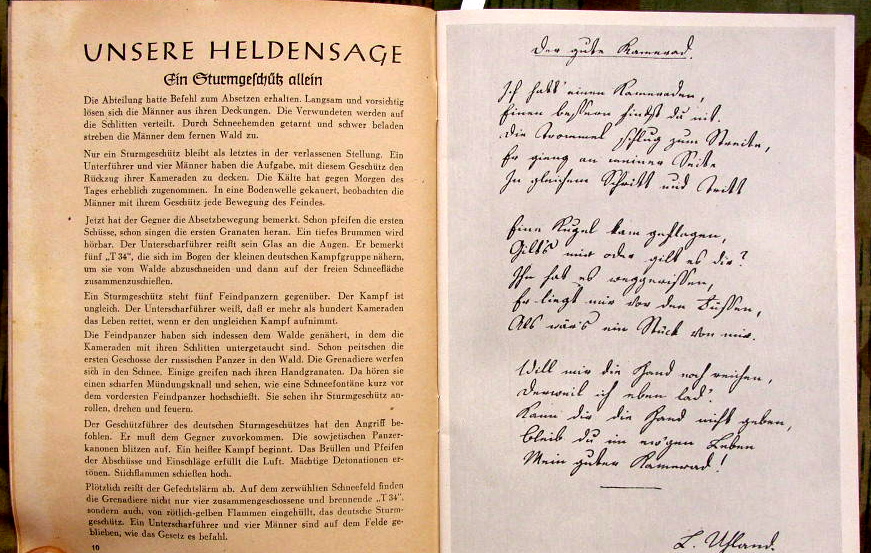 UNSERE HELDENSAGE
Ein Sturmgeschütz allein
Die Abteilung hatte Befehl zum Absetzen erhalten. Langsam und vorsichtig
lösen sich die Männer aus ihren Deckungen. Die Verwundeten werden auf
die Schlitten verteilt. Durch Schneehemden getarnt und schwer beladen
streben die Männer dem fernen Wald zu.
Nur ein Sturmgeschütz bleibt als letztes in der verlassenen Stellung. Ein
Unterführer und vier Männer haben die Aufgabe, mit diesem Geschütz den
Rückzug ihrer Kameraden zu decken. Die Kälte hat gegen Morgen des
Tages erheblich zugenommen. In eine Bodenwelle gekauert, beobachten die
Männer mit ihrem Geschütz jede Bewegung des Feindes.
Jetzt hat der Gegner die Absetzbewegung bemerkt. Schon pfeifen die ersten
Schüsse, schon singen die ersten Granaten heran. Ein tiefes Brummen wird
hörbar. Der Unterscharführer reißt sein Glas an die Augen. Er bemerkt
fünf „T 34", die sich im Bogen der kleinen deutschen Kampfgruppe nähern,
um sie vom Walde abzuschneiden und dann auf der freien Schneefläche
zusammenzuschießen.
Ein Sturmgeschütz steht fünf Feindpanzern gegenüber. Der Kampf ist
ungleich. Der Unterscharführer weiß, daß er mehr als hundert Kameraden
das Leben rettet, wenn er den ungleichen Kampf aufnimmt.
Die Feindpanzer haben sich indessen dem Walde genähert, in dem die
Kameraden mit ihren Schlitten untergetaucht sind. Schon peitschen die
ersten Geschosse der russischen Panzer in den Wald. Die Grenadiere werfen
sich in den Schnee. Einige greifen nach ihren Handgranaten. Da hören sie
einen scharfen Mündungsknall und sehen, wie eine Schneefontäne kurz vor
dem vordersten Feindpanzer hochschießt. Sie sehen ihr Sturmgeschütz an-
rollen, drehen und feuern.
Der Geschützführer des deutschen Sturmgeschützes hat den Angriff be-
fohlen. Er muß dem Gegner zuvorkommen. Die sowjetischen Panzer-
kanonen blitzen auf. Ein heißer Kampf beginnt. Das Brüllen und Pfeifen
der Abschüsse und Einschläge erfüllt die Luft. Mächtige Detonationen er-
tönen. Stichflammen schießen hoch.
Plötzlich reißt der Gefechtslärm ab. Auf dem zerwühlten Schneefeld finden
die Grenadiere nicht nur vier zusammengeschossene und brennende „T 34",
sondern auch, von rötlich-gelben Flammen eingehüllt, das deutsche Sturm-
geschütz. Ein Unterscharführer und vier Männer sind auf dem Felde ge-
blieben, wie das Gesetz es befahl.
10
Der gute Kamerad.
Ich hatt' einen Kameraden,
Einen bessern findst du nit.
Die Trommel schlug zum Streite,
Er gieng an meiner Seite
In gleichem Schritt und Tritt
Eine Kugel kam geflogen,
Gilt's mir oder gilt es dir?
Ihn hat es weggerissen,
Er liegt mir vor den Füssen,
Als wär's ein Stück von mir.
Will mir die Hand noch reichen,
Derweil ich eben lad'.
Kann dir die Hand nicht geben,
Bleib du im ew'gen Leben
Mein guter Kamerad!
L. Uhland.